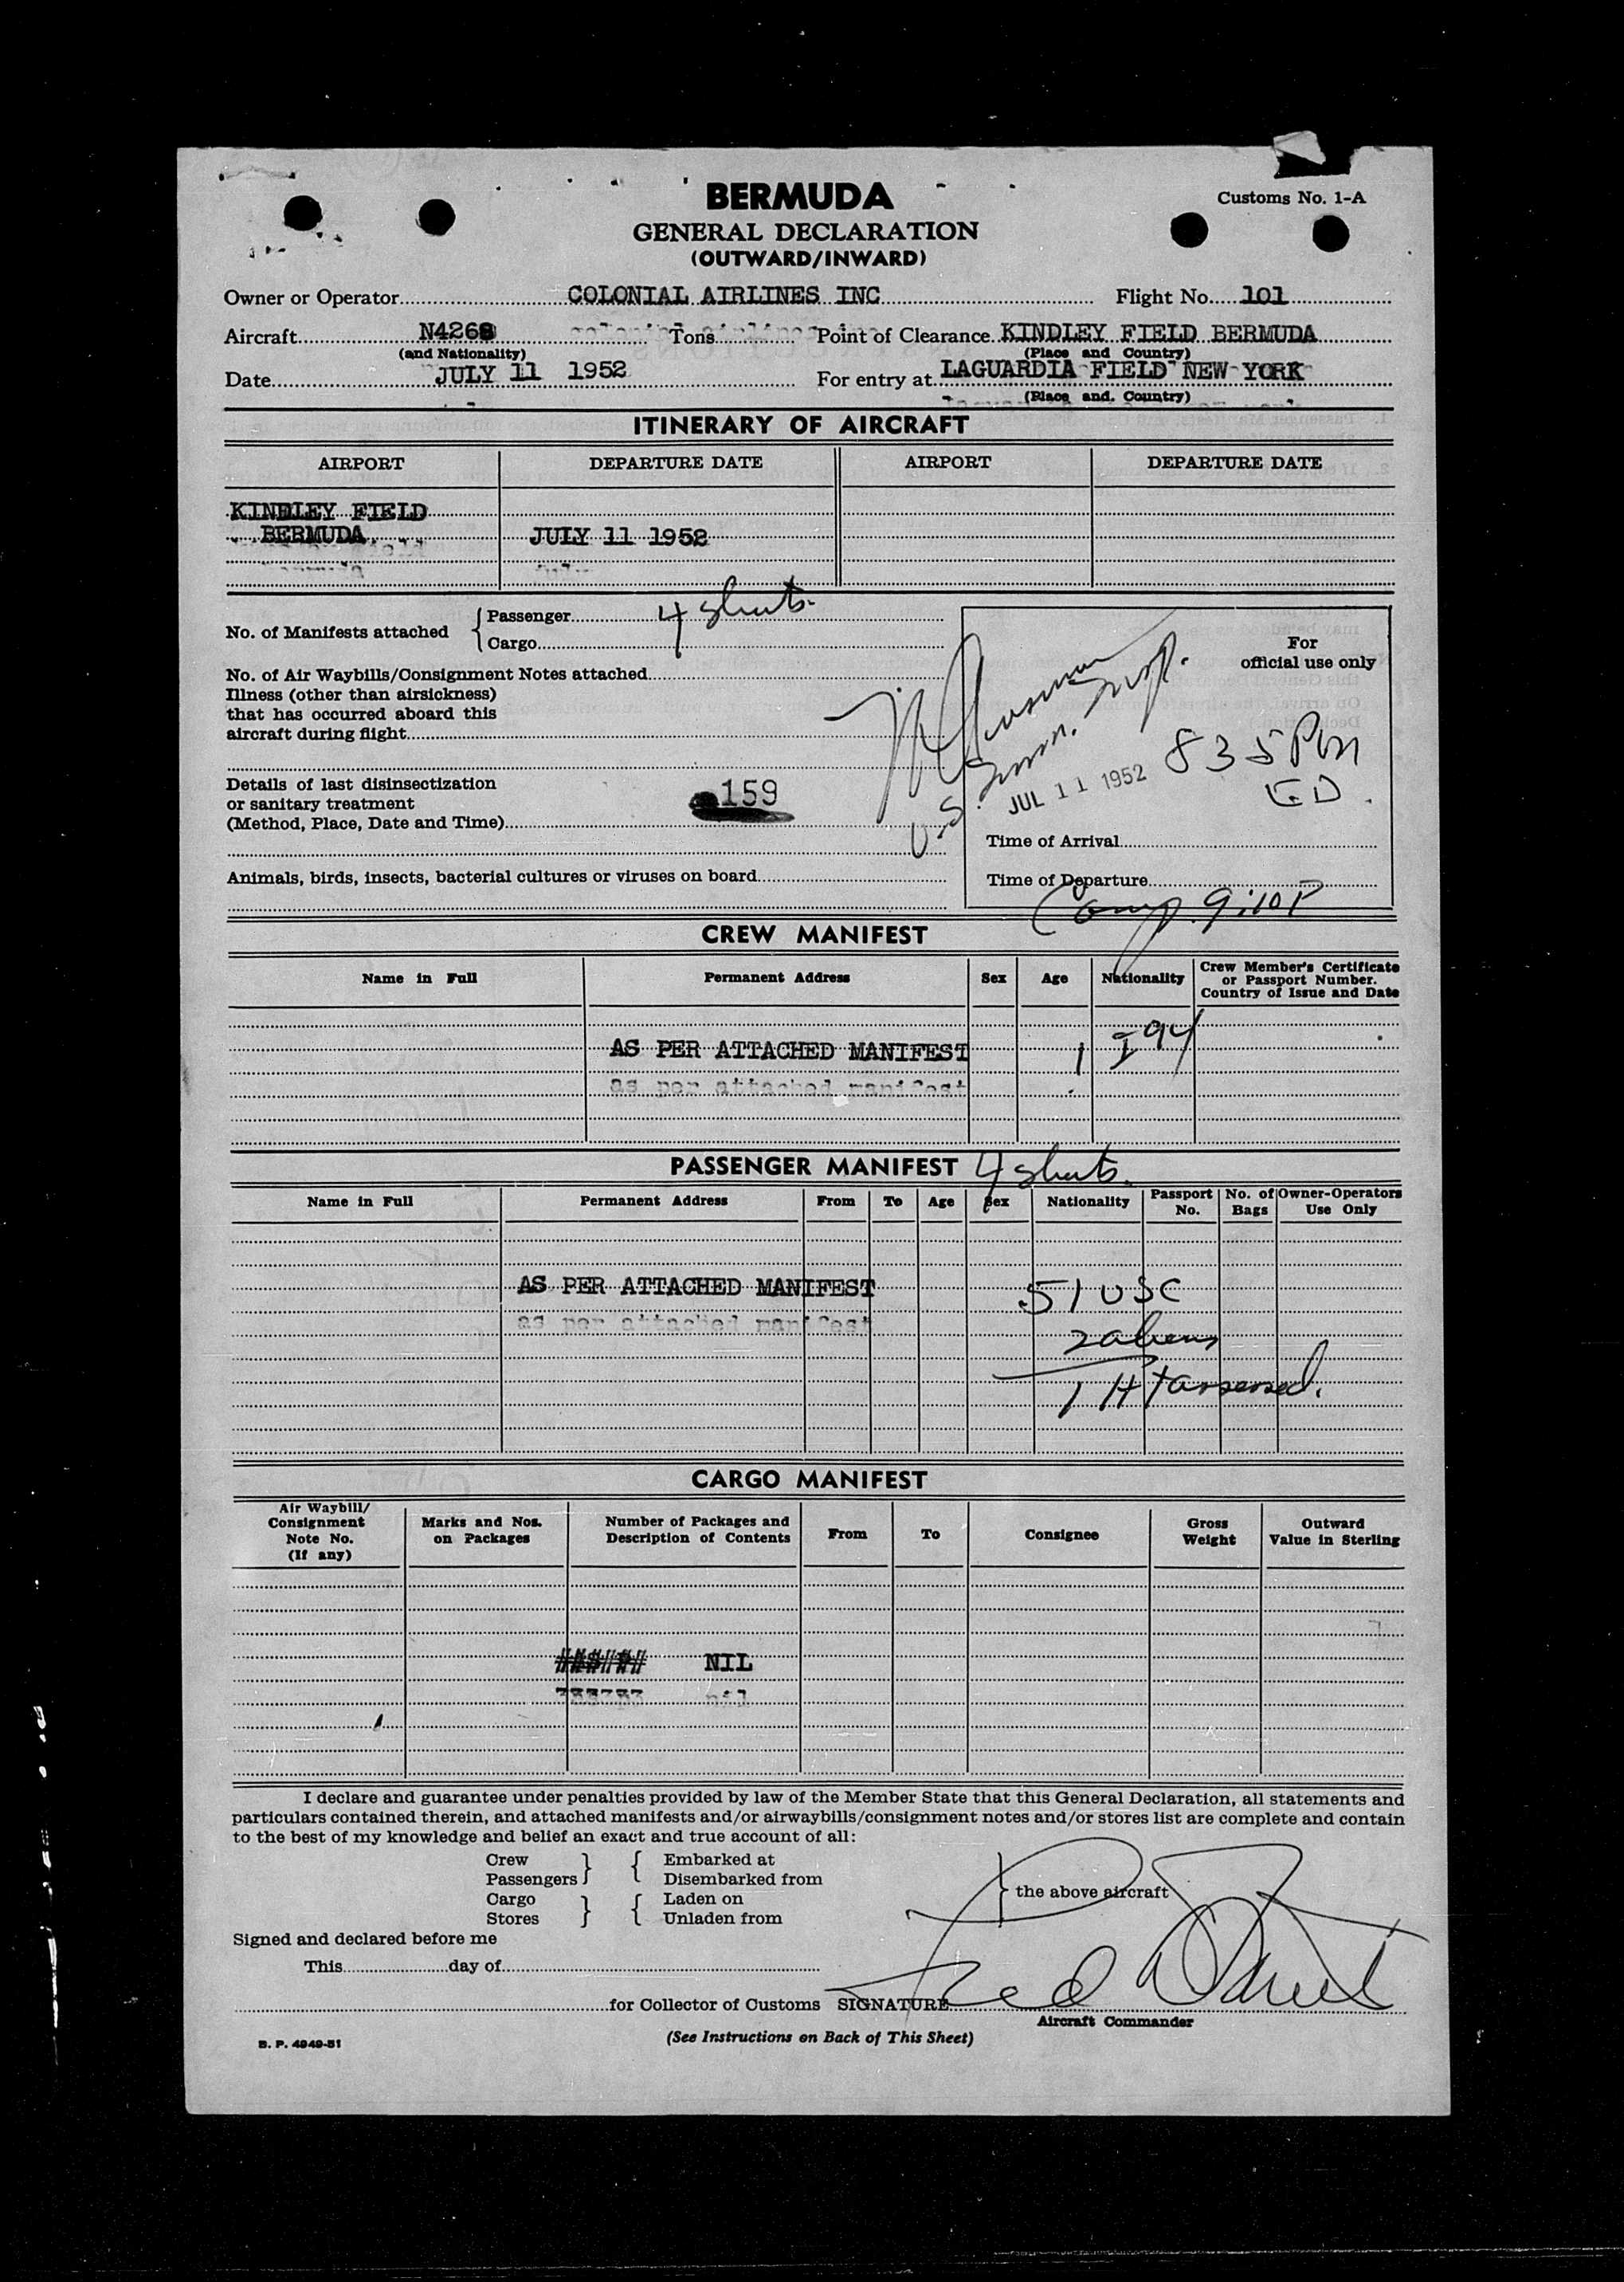 BERMUDA
Customs No. 1-A
GENERAL DECLARATION
(OUTWARD/INWARD)
Owner or Operator COLONIAL AIRLINES INC Flight No. 101
Aircraft N4268 Tons Point of Clearance KINDLEY FIELD BERMUDA
(and Nationality) (Place and Country)
Date JULY 11 1952 For entry at LAGUARDIA FIELD NEW YORK
(Place and Country)
ITINERARY OF AIRCRAFT
AIRPORT DEPARTURE DATE AIRPORT DEPARTURE DATE
KINDLEY FIELD
BERMUDA JULY 11 1952
No. of Manifests attached { Passenger 4 sheets.
Cargo
For
official use only
No. of Air Waybills/Consignment Notes attached
Illness (other than airsickness)
that has occurred aboard this
aircraft during flight
U.S. Imm. Insp.
JUL 11 1952
835 Pm
ED.
Details of last disinsectization
or sanitary treatment
(Method, Place, Date and Time)
159
Time of Arrival
Animals, birds, insects, bacterial cultures or viruses on board
Time of Departure
Comp. 9:10P
CREW MANIFEST
Name in Full Permanent Address Sex Age Nationality Crew Member's Certificate
or Passport Number.
Country of Issue and Date
AS PER ATTACHED MANIFEST 1 I94
as per attached manifest
PASSENGER MANIFEST 4 sheets.
Name in Full Permanent Address From To Age Sex Nationality Passport No. No. of Bags Owner-Operators Use Only
AS PER ATTACHED MANIFEST 51 USC
as per attached manifest
2 aliens
1 HT assessed.
CARGO MANIFEST
Air Waybill/
Consignment
Note No.
(If any)
Marks and Nos.
on Packages
Number of Packages and
Description of Contents
From To Consignee
Gross
Weight
Outward
Value in Sterling
NIL
nil
I declare and guarantee under penalties provided by law of the Member State that this General Declaration, all statements and
particulars contained therein, and attached manifests and/or airwaybills/consignment notes and/or stores list are complete and contain
to the best of my knowledge and belief an exact and true account of all:
Crew } { Embarked at
Passengers } { Disembarked from
Cargo } { Laden on
Stores } { Unladen from
} the above aircraft
Signed and declared before me
This day of
for Collector of Customs SIGNATURE
Aircraft Commander
(See Instructions on Back of This Sheet)
B. P. 4949-51